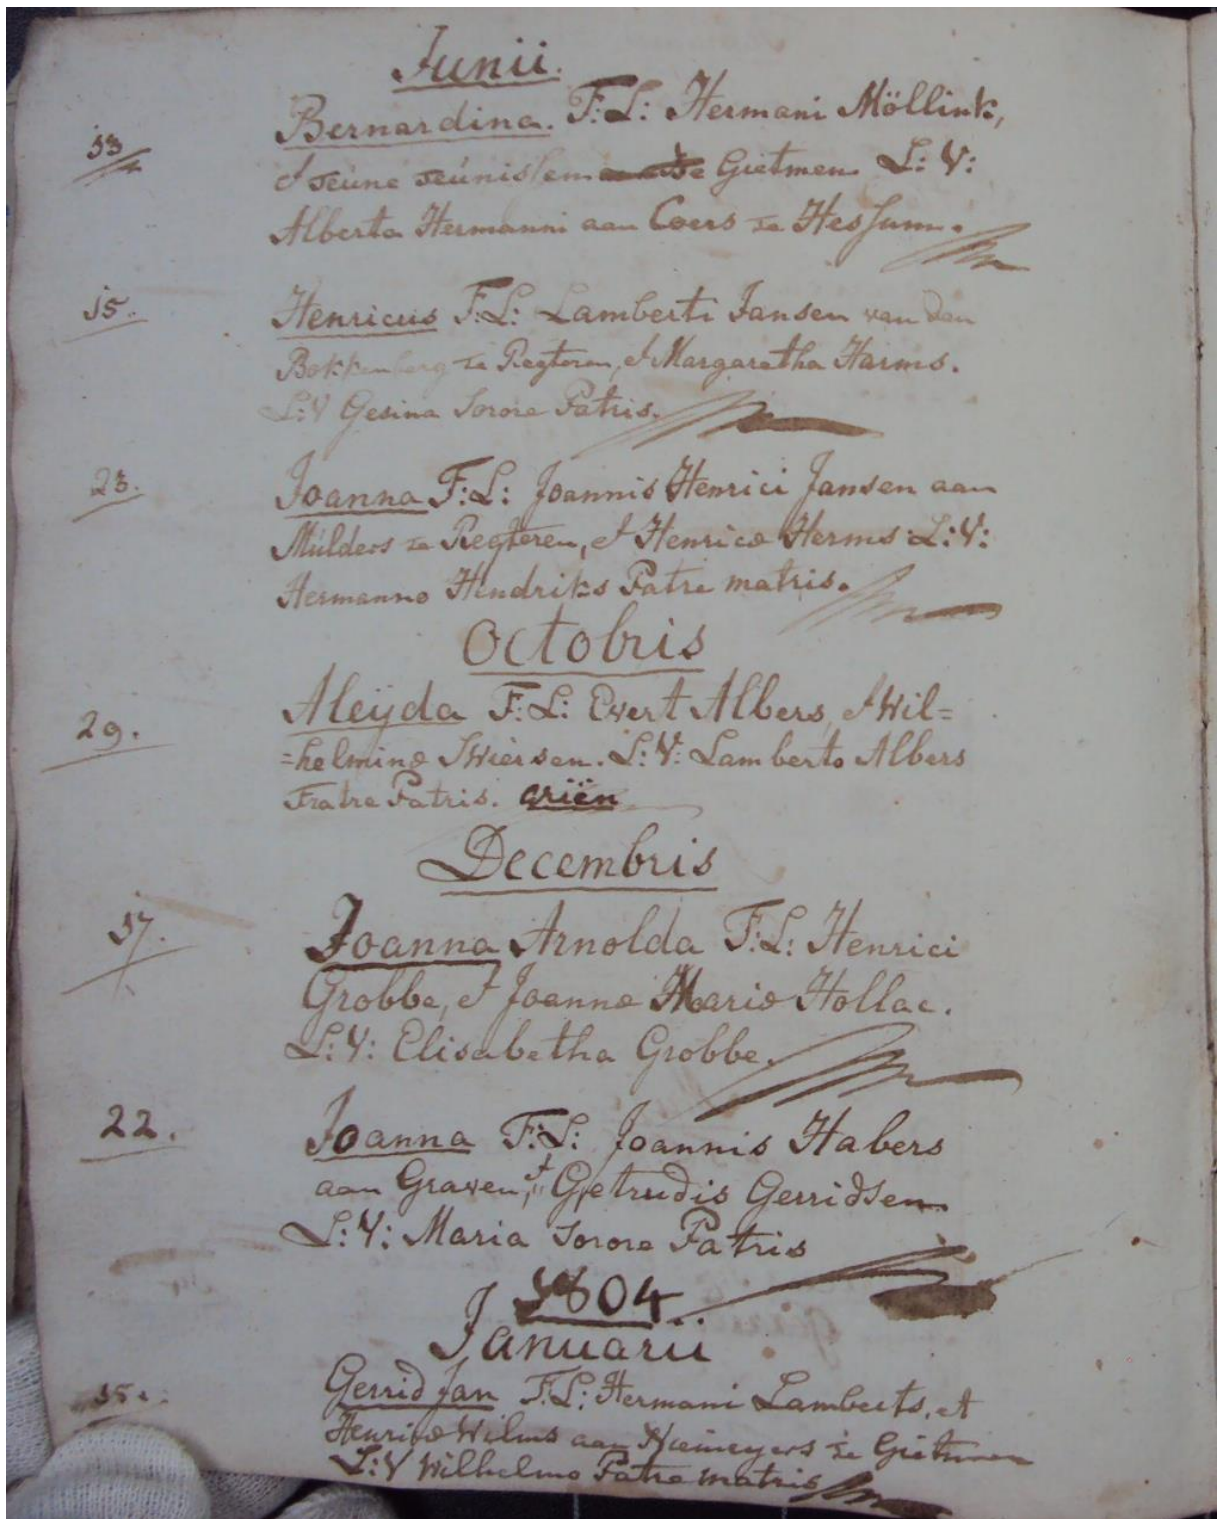 Junii.
13 Bernardina. F: L: Hermani Möllink,
et Teúne Teúnissen te Gietmen L: V:
Alberta Hermanni aan Coers te Hessum.
15. Henricus F: L: Lamberti Jansen van den
Bokkenberg te Regteren, et Margaretha Harms.
L: V Gesina Sorore Patris.
23. Joanna F: L: Joannis Henrici Jansen aan
Múlders te Regteren, et Henricæ Herms L: V:
Hermanno Hendriks Patre matris.
Octobris
29. Aleÿda F: L: Evert Albers, et Wil=
=helminæ Swiersen. L: V: Lamberto Albers
Fratre Patris. Ariën
Decembris
17. Joanna Arnolda F: L: Henrici
Grobbe, et Joannæ Mariæ Hollac.
L: V: Elisabetha Grobbe.
22. Joanna F: L: Joannis Habers
aan Graven, et Getrudis Gerridsen.
L: V: Maria Sorore Patris
1804.
Januarii
15. Gerrid Jan F: L: Hermani Lamberts, et
Henricæ Wilms aan Niemeyers te Gietmen
L: V Wilhelmo Patre matris